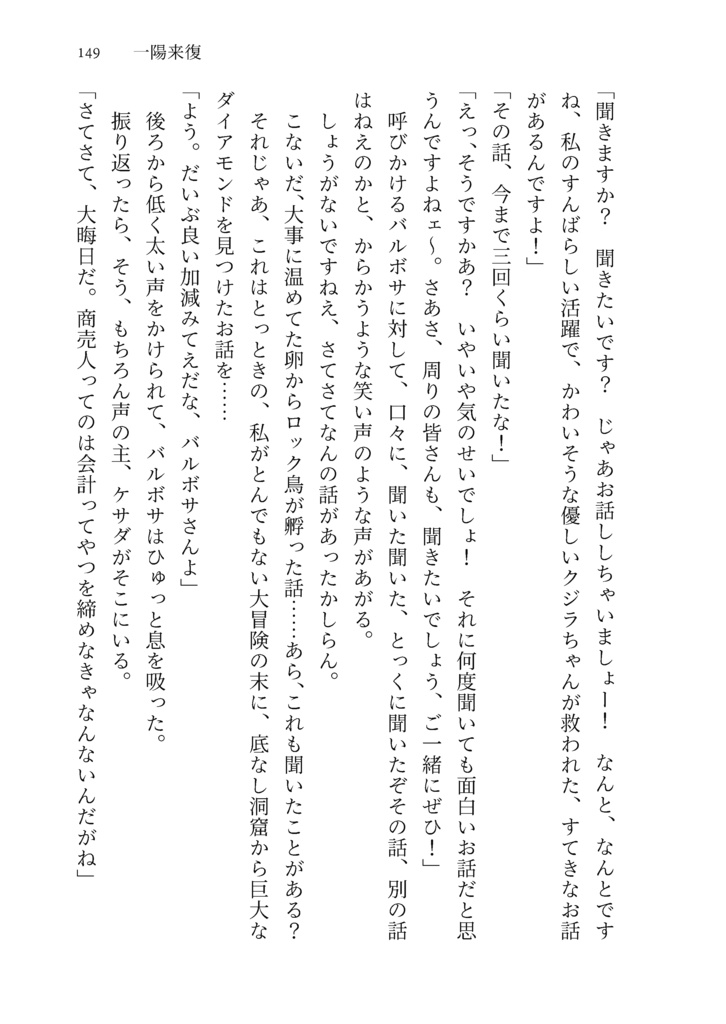 149　一陽来復
「聞きますか？　聞きたいです？　じゃあお話ししちゃいましょー！　なんと、なんとです
ね、私のすんばらしい活躍で、かわいそうな優しいクジラちゃんが救われた、すてきなお話
があるんですよ！」
「その話、今まで三回くらい聞いたな！」
「えっ、そうですかあ？　いやいや気のせいでしょ！　それに何度聞いても面白いお話だと思
うんですよねェ～。さあさ、周りの皆さんも、聞きたいでしょう、ご一緒にぜひ！」
　呼びかけるバルボサに対して、口々に、聞いた聞いた、とっくに聞いたぞその話、別の話
はねえのかと、からかうような笑い声のような声があがる。
　しょうがないですねえ、さてさてなんの話があったかしらん。
　こないだ、大事に温めてた卵からロック鳥が孵った話……あら、これも聞いたことがある？
　それじゃあ、これはとっときの、私がとんでもない大冒険の末に、底なし洞窟から巨大な
ダイアモンドを見つけたお話を……
「よう。だいぶ良い加減みてえだな、バルボサさんよ」
　後ろから低く太い声をかけられて、バルボサはひゅっと息を吸った。
　振り返ったら、そう、もちろん声の主、ケサダがそこにいる。
「さてさて、大晦日だ。商売人ってのは会計ってやつを締めなきゃなんないんだがね」